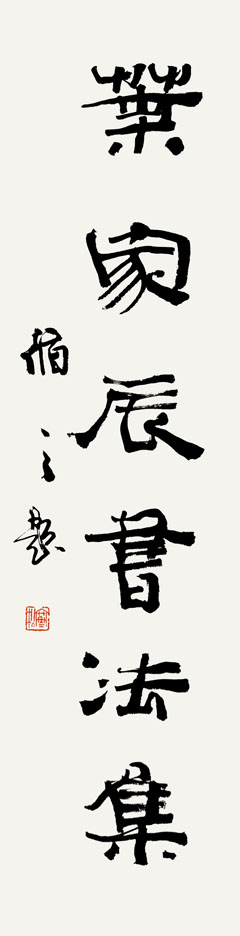 葉家辰書法集
伯之題